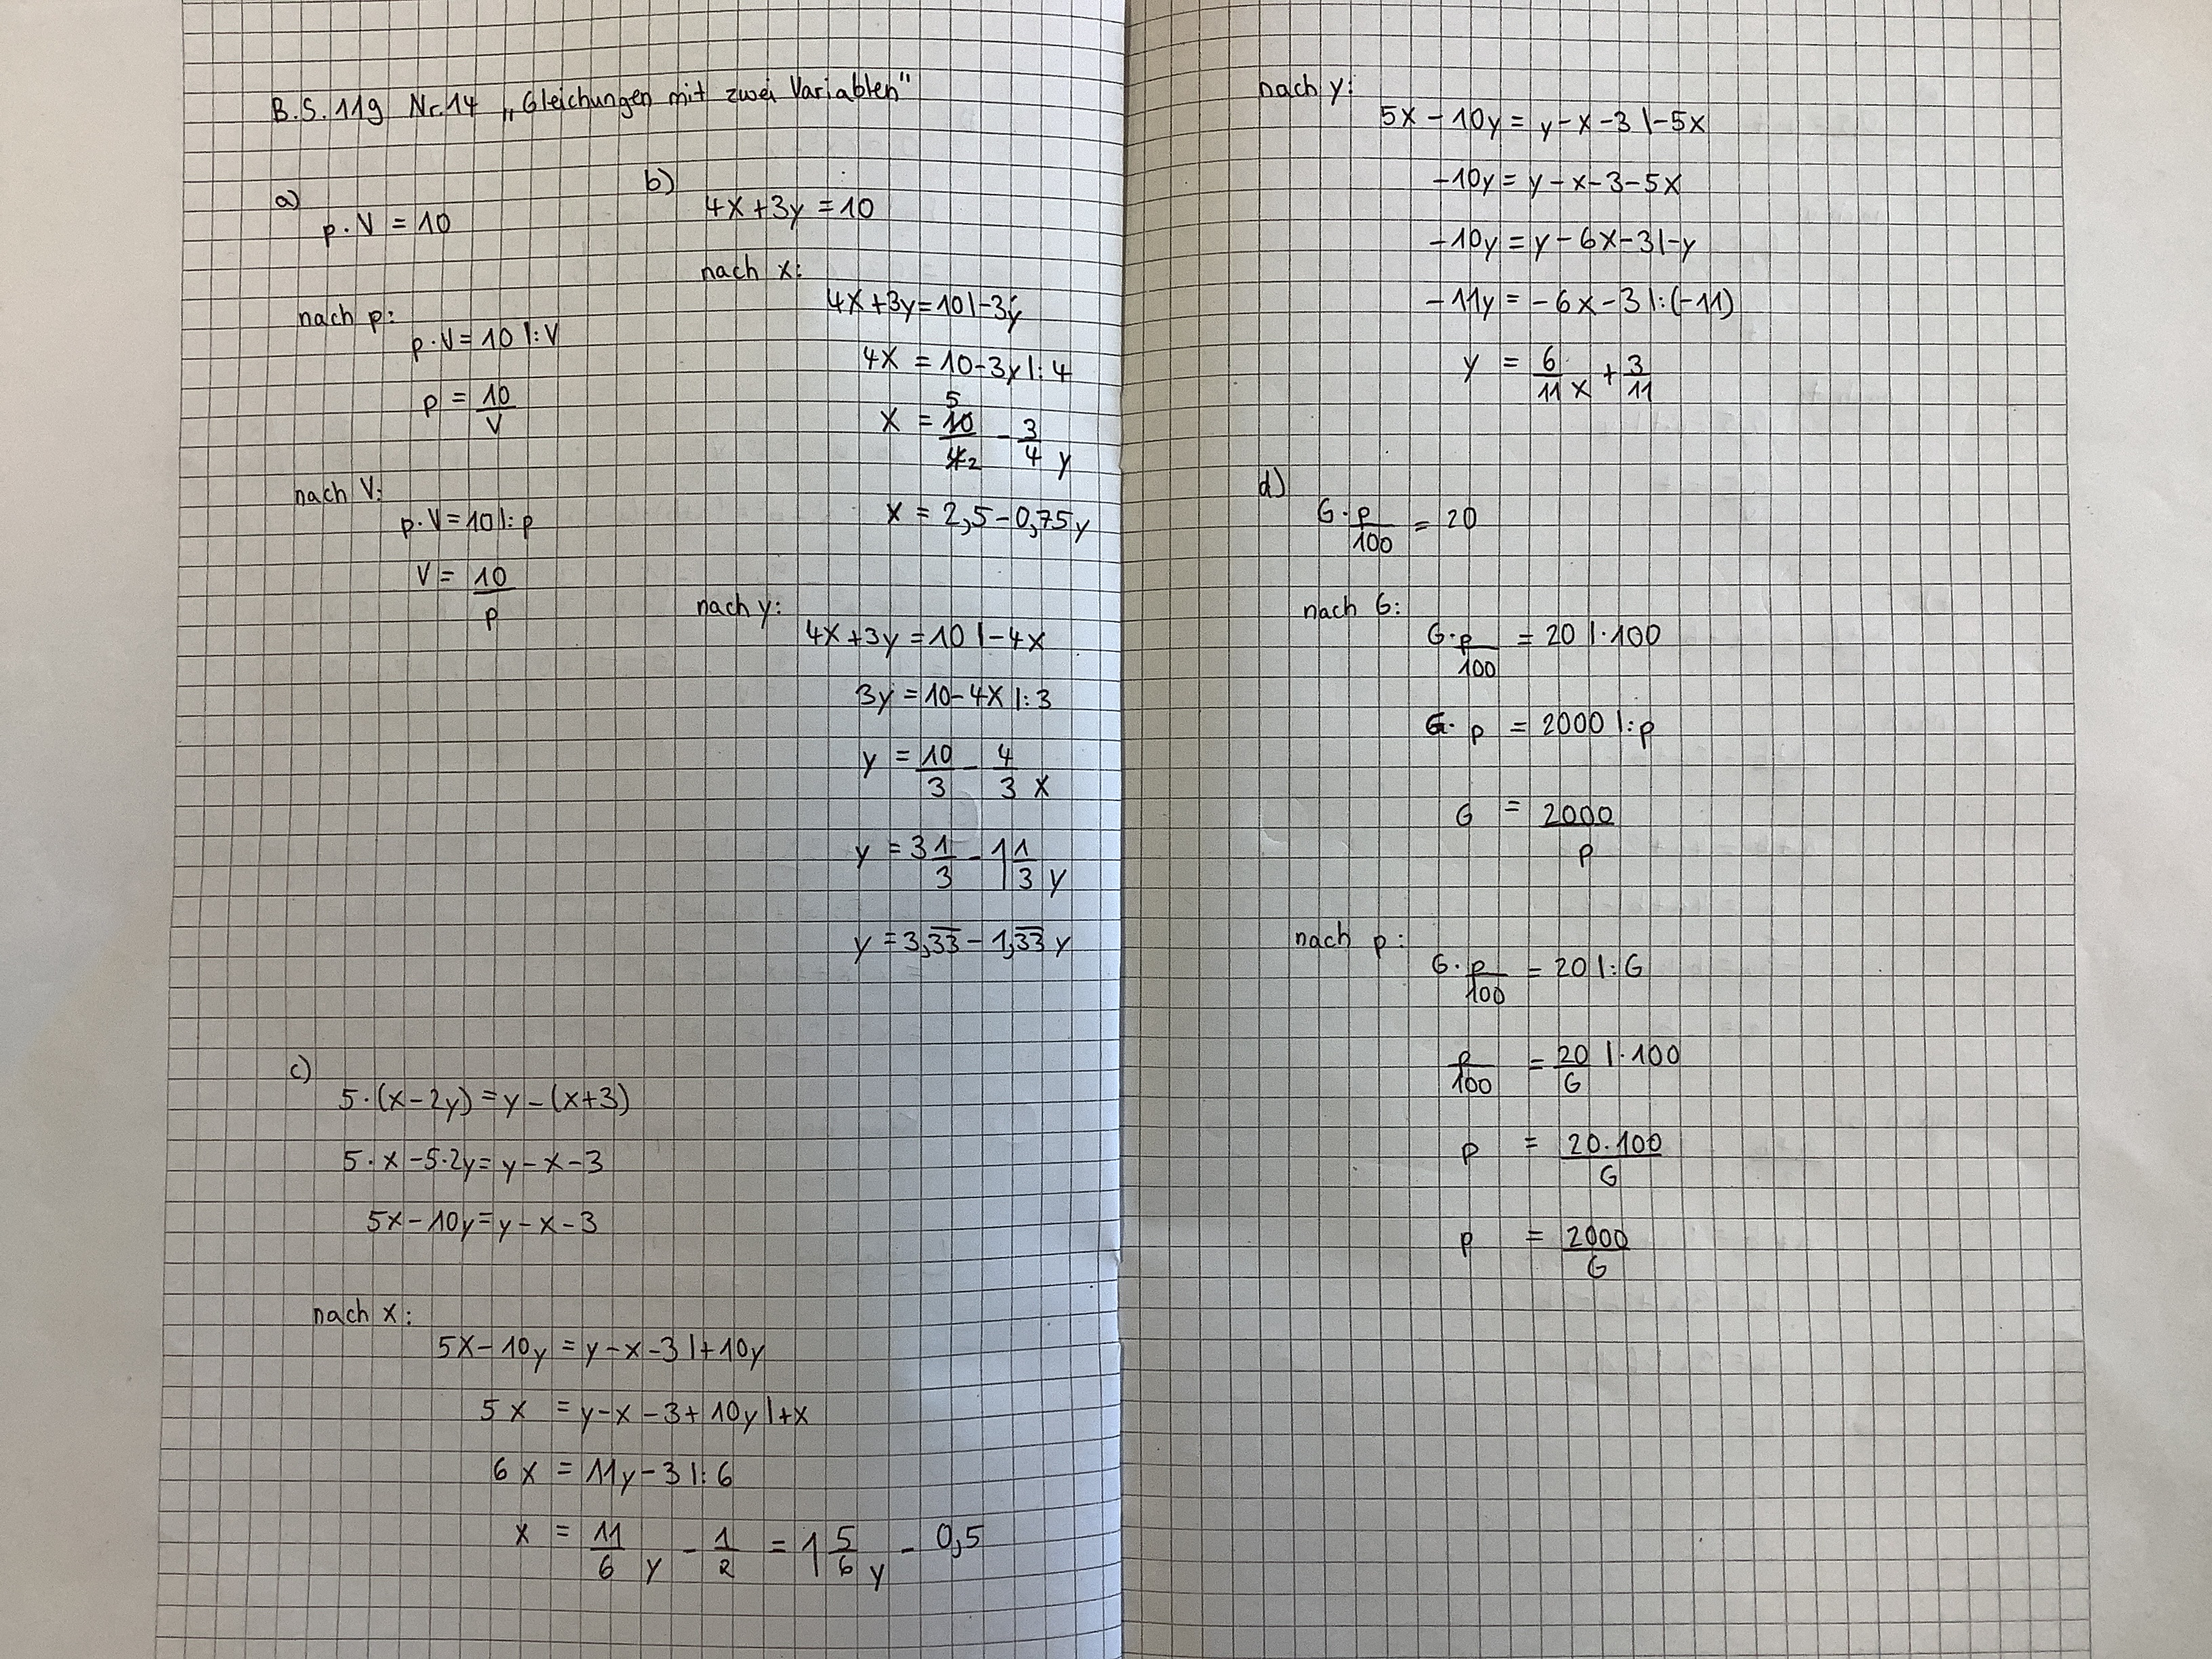 B.S. 119 Nr. 14 „Gleichungen mit zwei Variablen"
a)
p · V = 10
nach p:
p · V = 10 |: V
p = 10/V
nach V:
p · V = 10 |: p
V = 10/p
b)
4x + 3y = 10
nach x:
4x + 3y = 10 | - 3y
4x = 10 - 3y |: 4
x = 10/4 5/2 - 3/4 y
x = 2,5 - 0,75y
nach y:
4x + 3y = 10 | - 4x
3y = 10 - 4x |: 3
y = 10/3 - 4/3 x
y = 3 1/3 - 1 1/3 y
y = 3,3̅3̅ - 1,3̅3̅ y
c)
5 · (x - 2y) = y - (x + 3)
5 · x - 5 · 2y = y - x - 3
5x - 10y = y - x - 3
nach x:
5x - 10y = y - x - 3 | + 10y
5x = y - x - 3 + 10y | + x
6x = 11y - 3 |: 6
x = 11/6 y - 1/2 = 1 5/6 y - 0,5
nach y:
5x - 10y = y - x - 3 | - 5x
-10y = y - x - 3 - 5x
-10y = y - 6x - 3 | - y
-11y = -6x - 3 |: (-11)
y = 6/11 x + 3/11
d)
G · p/100 = 20
nach G:
G · p/100 = 20 | · 100
G · p = 2000 |: p
G = 2000/p
nach p:
G · p/100 = 20 |: G
p/100 = 20/G | · 100
p = 20 · 100/G
p = 2000/G